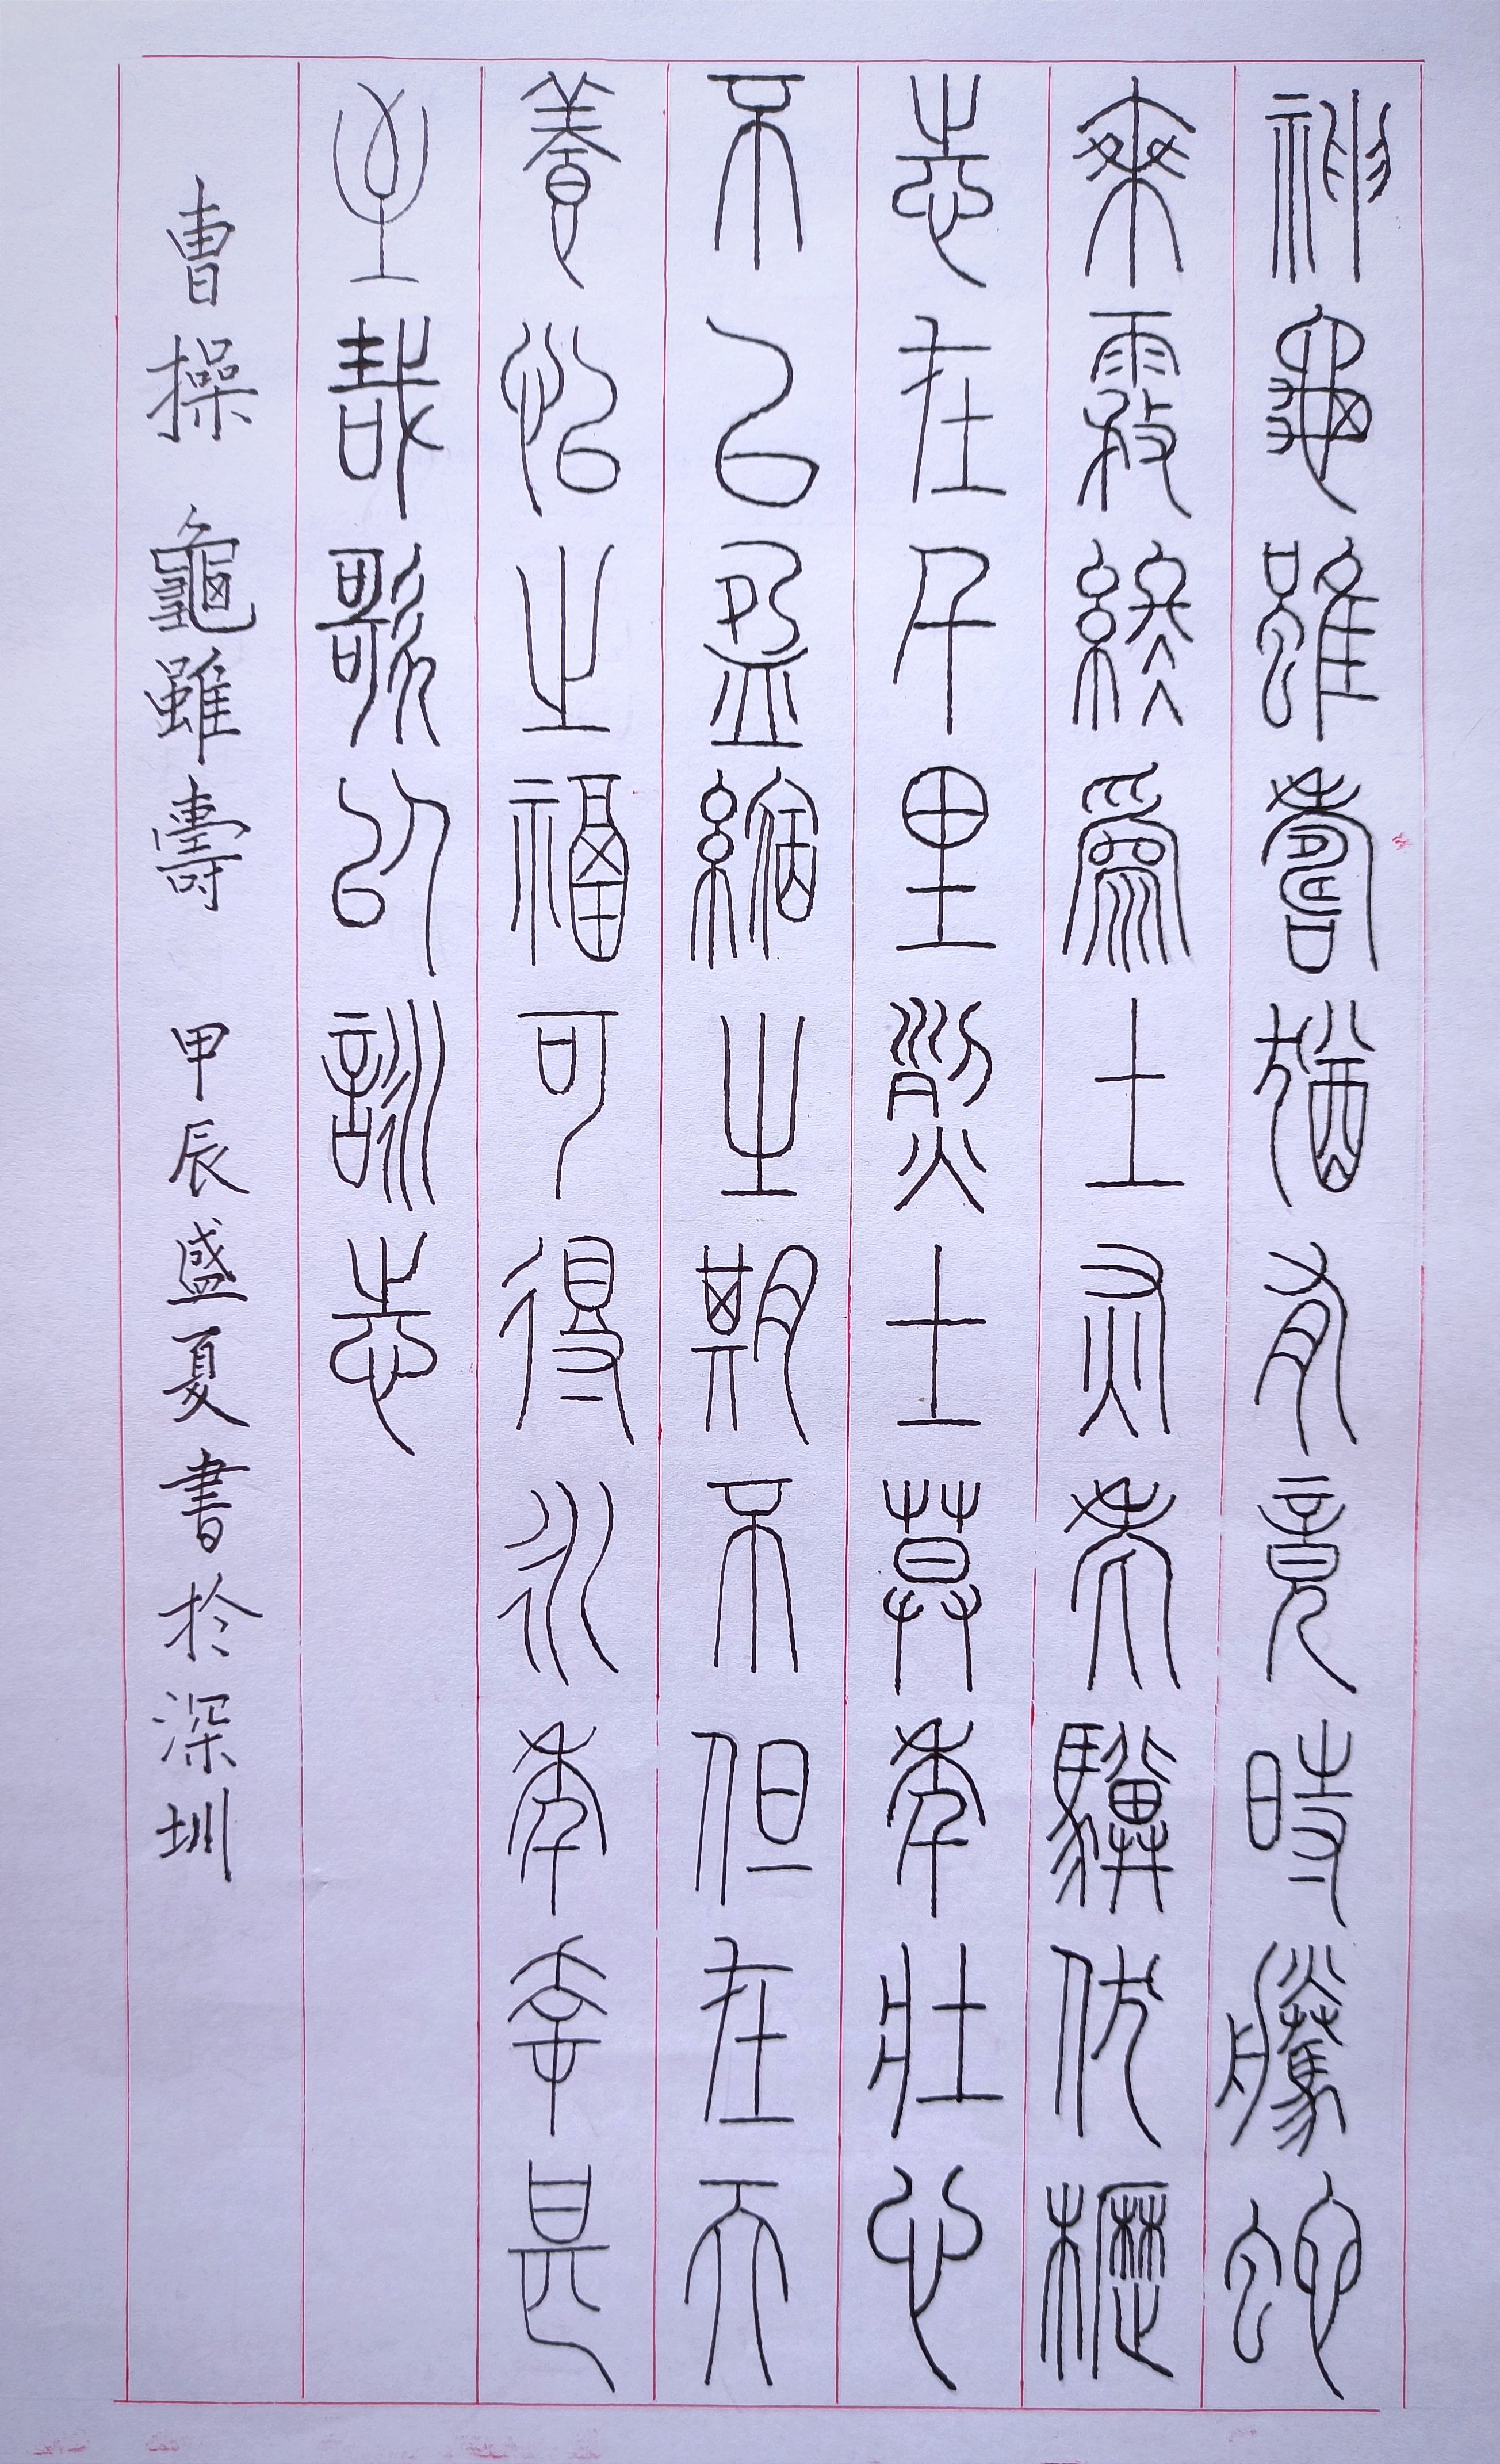 神龜雖壽猶有竟時騰蛇
乘霧終為土灰老驥伏櫪
志在千里烈士暮年壯心
不已盈縮之期不但在天
養怡之福可得永年幸甚
至哉歌以詠志
曹操 龜雖壽 甲辰盛夏書於深圳